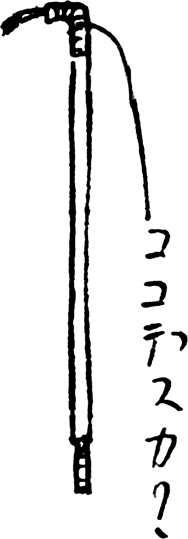 ココデスカ?